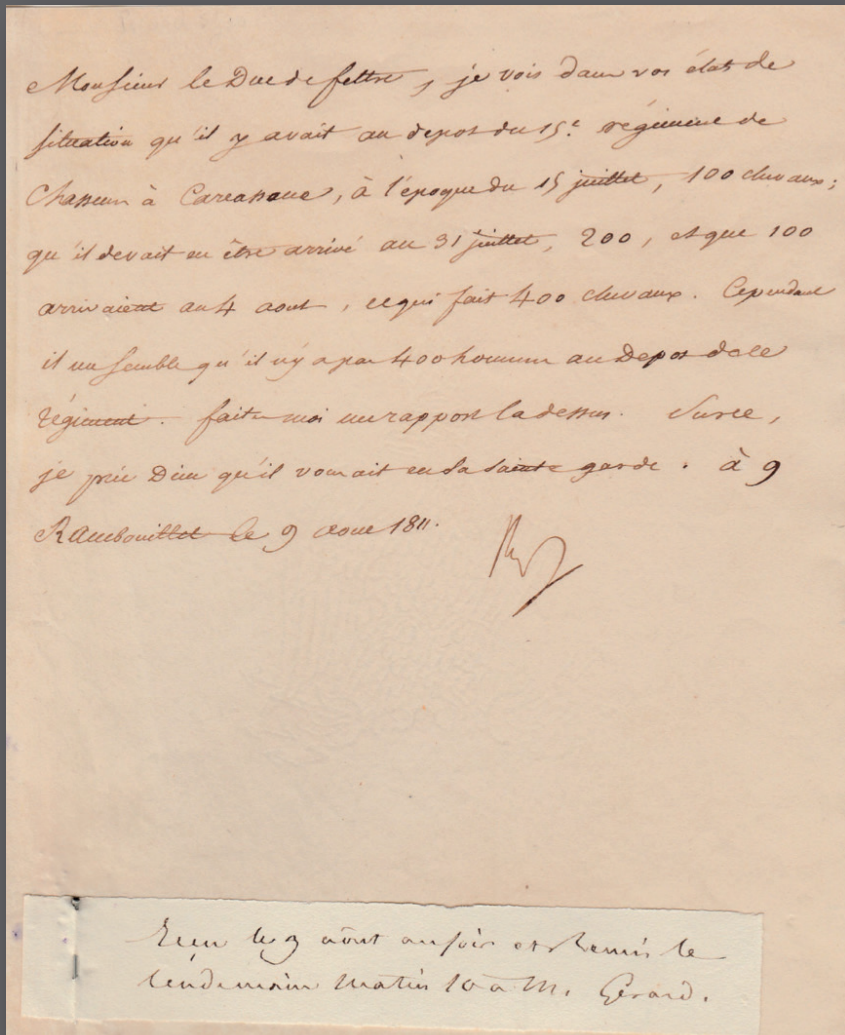 Monsieur le Duc de feltre, je vois dans vos états de
situation qu'il y avait au depot du 15e. régiment de
Chasseurs à Carcassonne, à l'époque du 15 juillet, 100 chevaux;
qu'il devait en être arrivé au 31 juillet, 200, et que 100
arrivaient au 4 aout, ce qui fait 400 chevaux. Cependant
il me semble qu'il n'y a pas 400 hommes au Depot de ce
régiment. faites moi un rapport la dessus. Sur ce,
je prie Dieu qu'il vous ait en sa sainte garde. à
Rambouillet le 9 aout 1811.
Recu le 9 août au soir et Remis le
lendemain matin 10 à M. Gérard.